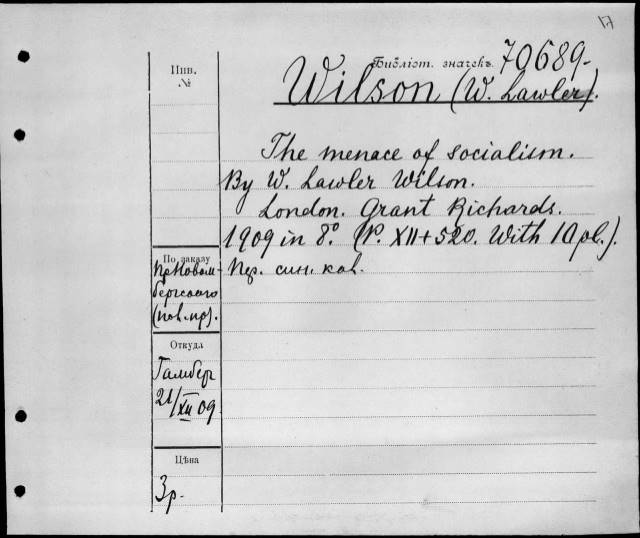 17
Инв.
№
Библіот. значекъ 70689.
Wilson (W. Lawler).
The menace of socialism.
By W. Lawler Wilson.
London. Grant Richards.
1909 in 8.° (P. XII+520. With 1 Apl.).
По заказу
Пер. син. кол.
бергскаго
Откуда
Гамбер
21/XII 09
Цѣна
3р.